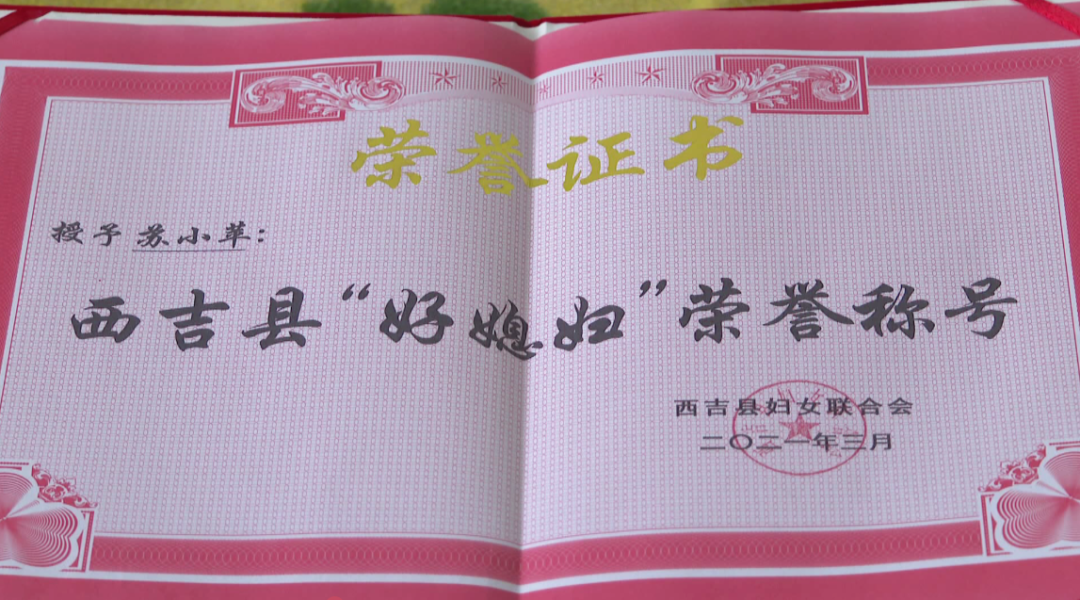 荣誉证书
授予 苏小苹：
西吉县“好媳妇”荣誉称号
西吉县妇女联合会
二〇二一年三月